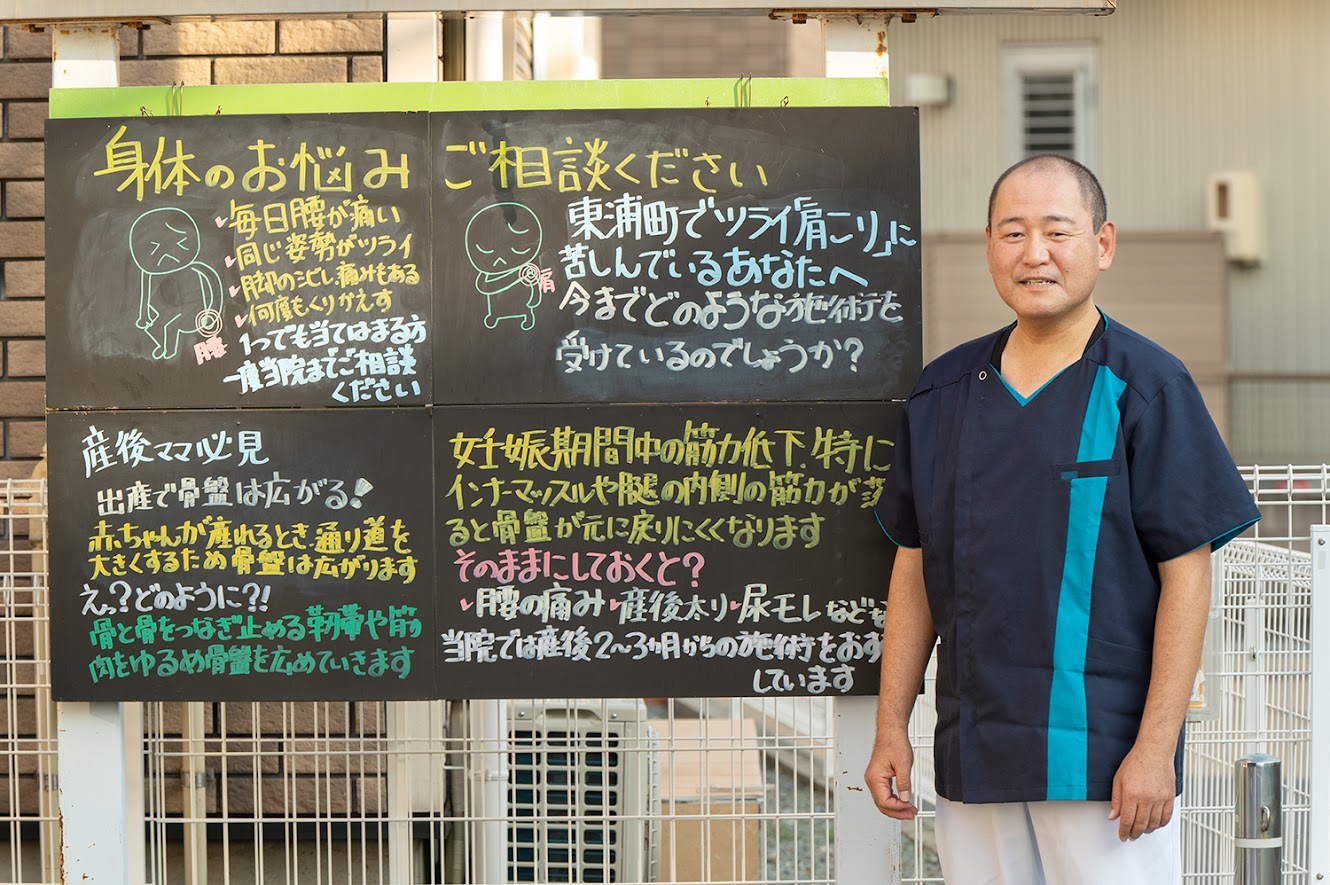 身体のお悩み ご相談ください
毎日腰が痛い
同じ姿勢がツライ
脚のシビレ、痛みもある
何度もくりかえす
腰
1つでも当てはまる方
一度当院までご相談
ください
肩
東浦町でツライ「肩こり」に
苦しんでいるあなたへ
今までどのような施術を
受けているのでしょうか?
産後ママ必見
出産で骨盤は広がる!
赤ちゃんが産れるとき、通り道を
大きくするため骨盤は広がります
えっ?どのように?!
骨と骨をつなぎ止める靭帯や筋
肉をゆるめ骨盤を広めていきます
妊娠期間中の筋力低下、特に
インナーマッスルや腿の内側の筋力が落
ると骨盤が元に戻りにくくなります
そのままにしておくと?
腰の痛み 産後太り 尿モレなどを
当院では産後2〜3ヵ月からの施術をおす
しています